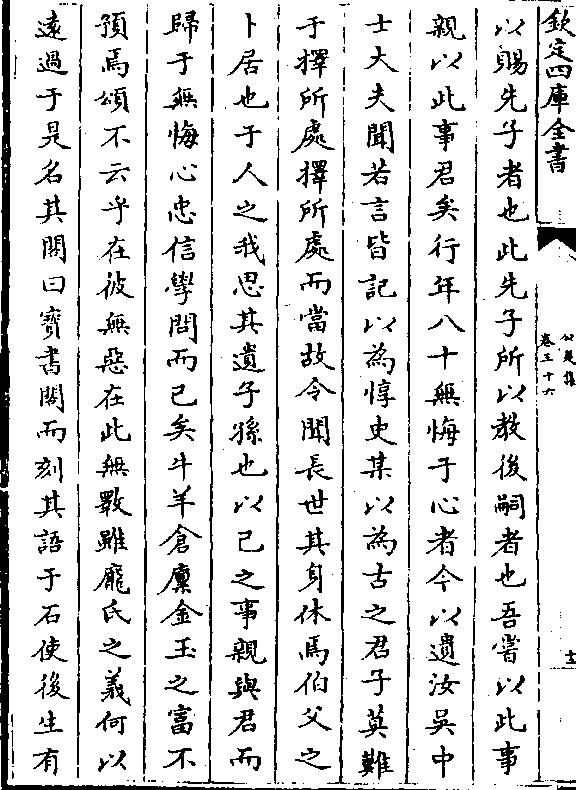 欽定四庫全書
公是集
卷三十六
十二
以賜先子者也此先子所以教後嗣者也吾嘗以此事
親以此事君矣行年八十無悔于心者今以遺汝吳中
士大夫聞若言皆記以為惇史某以為古之君子莫難
于擇所處擇所處而當故令聞長世其身休焉伯父之
卜居也于人之我思其遺子孫也以己之事親與君而
歸于無悔心忠信學問而已矣牛羊倉廩金玉之富不
預焉頌不云乎在彼無惡在此無斁雖龐氏之義何以
遠過于是名其閣曰寳書閣而刻其語于石使後生有